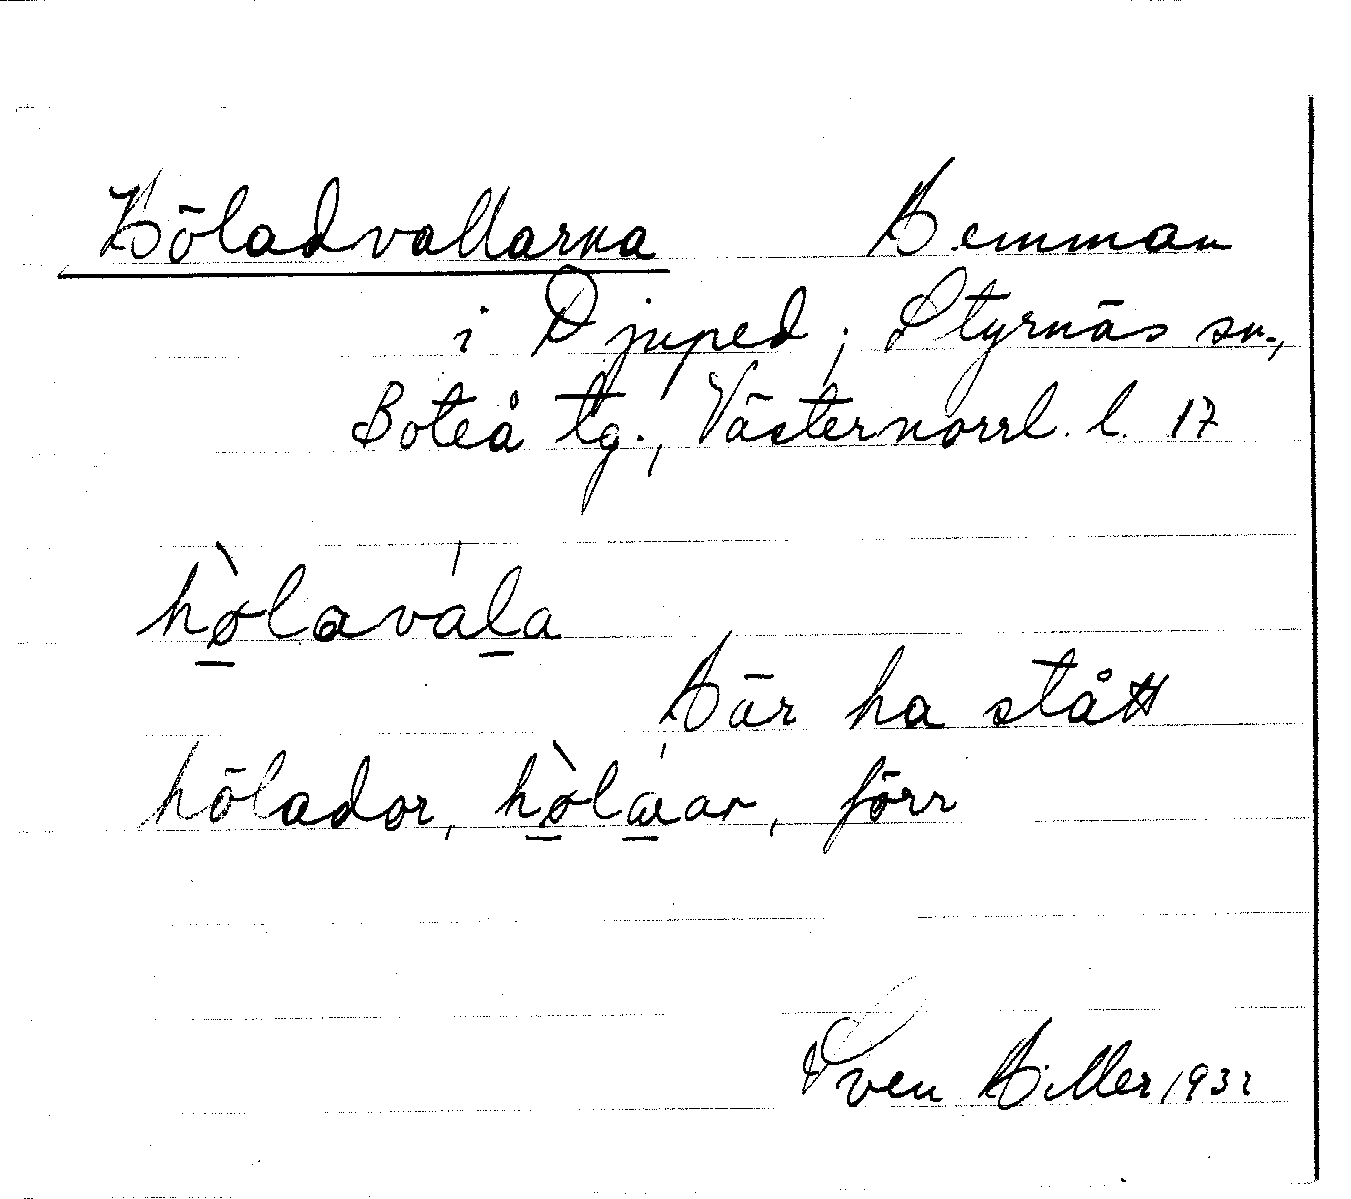 Höladvallarna Hemman
i Djuped, Styrnäs sn.,
Boteå tg., Västernorrl. l. 17
hø̀lavála
Här ha stått
hölador, hø̀lá̱ar, förr
Sven Hiller 1932